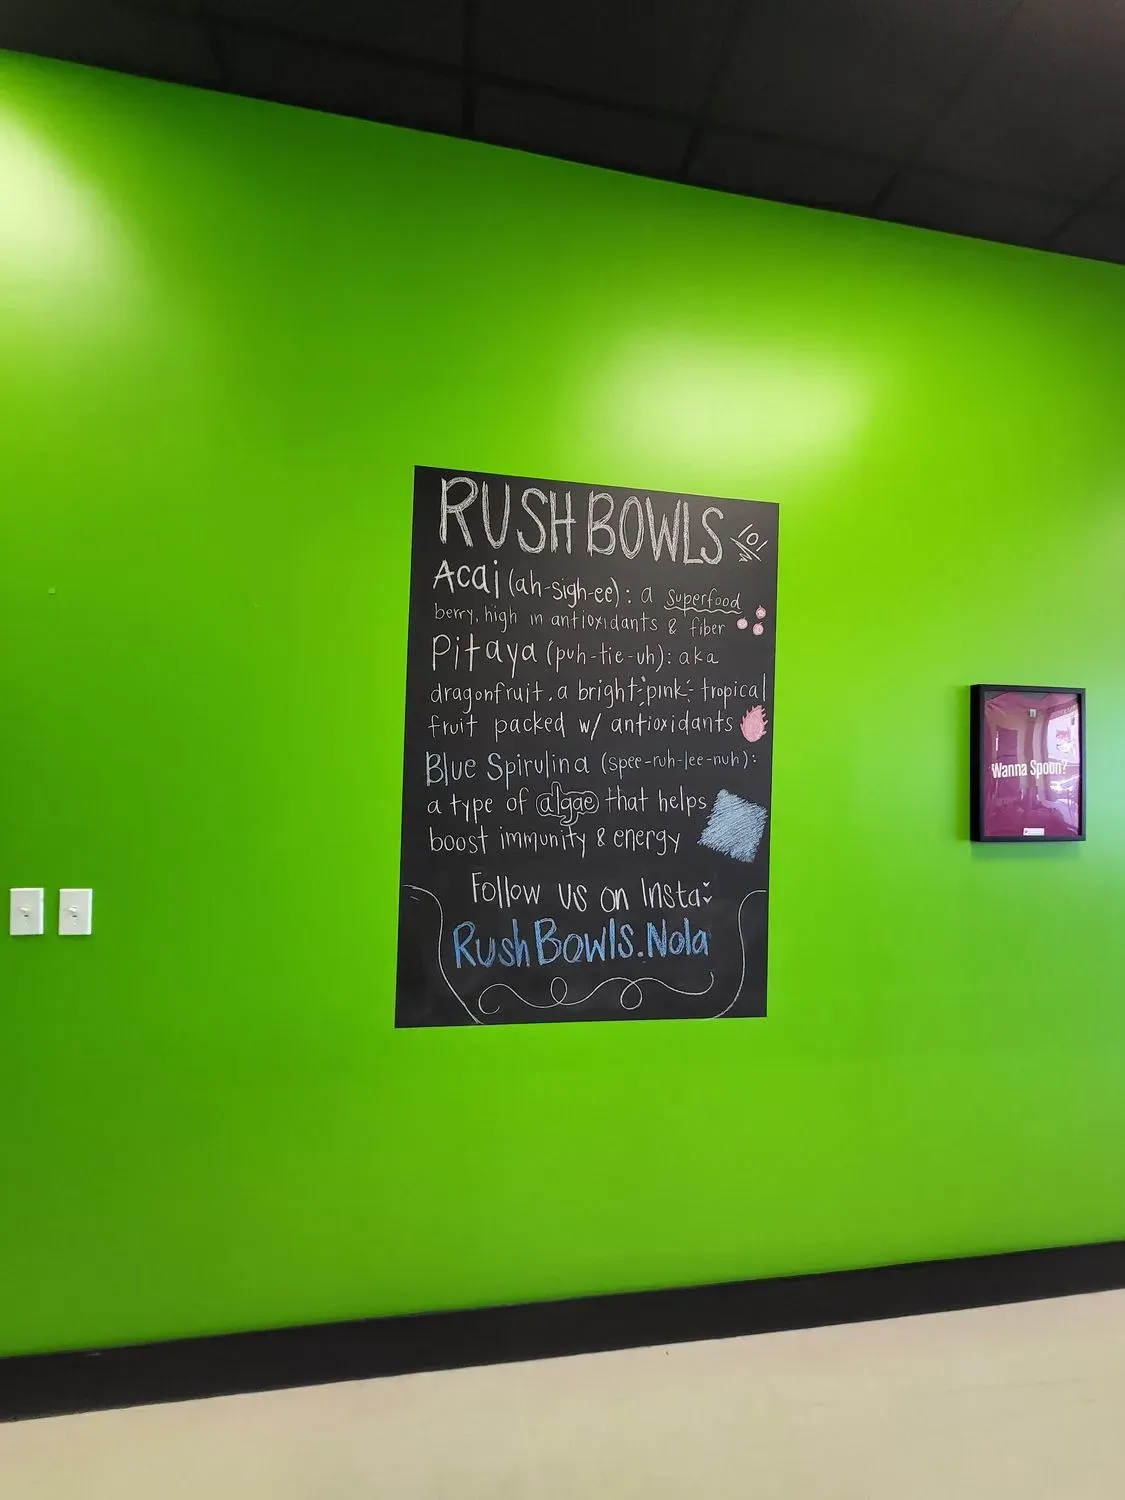 RUSH BOWLS 101
Acai (ah-sigh-ee): a superfood
berry, high in antioxidants & fiber
Pitaya (puh-tie-uh): aka
dragonfruit, a bright pink tropical
fruit packed w/ antioxidants
Blue Spirulina (spee-ruh-lee-nuh):
a type of algae that helps
boost immunity & energy
Follow us on Insta
RushBowls.Nola
Wanna Spoon?